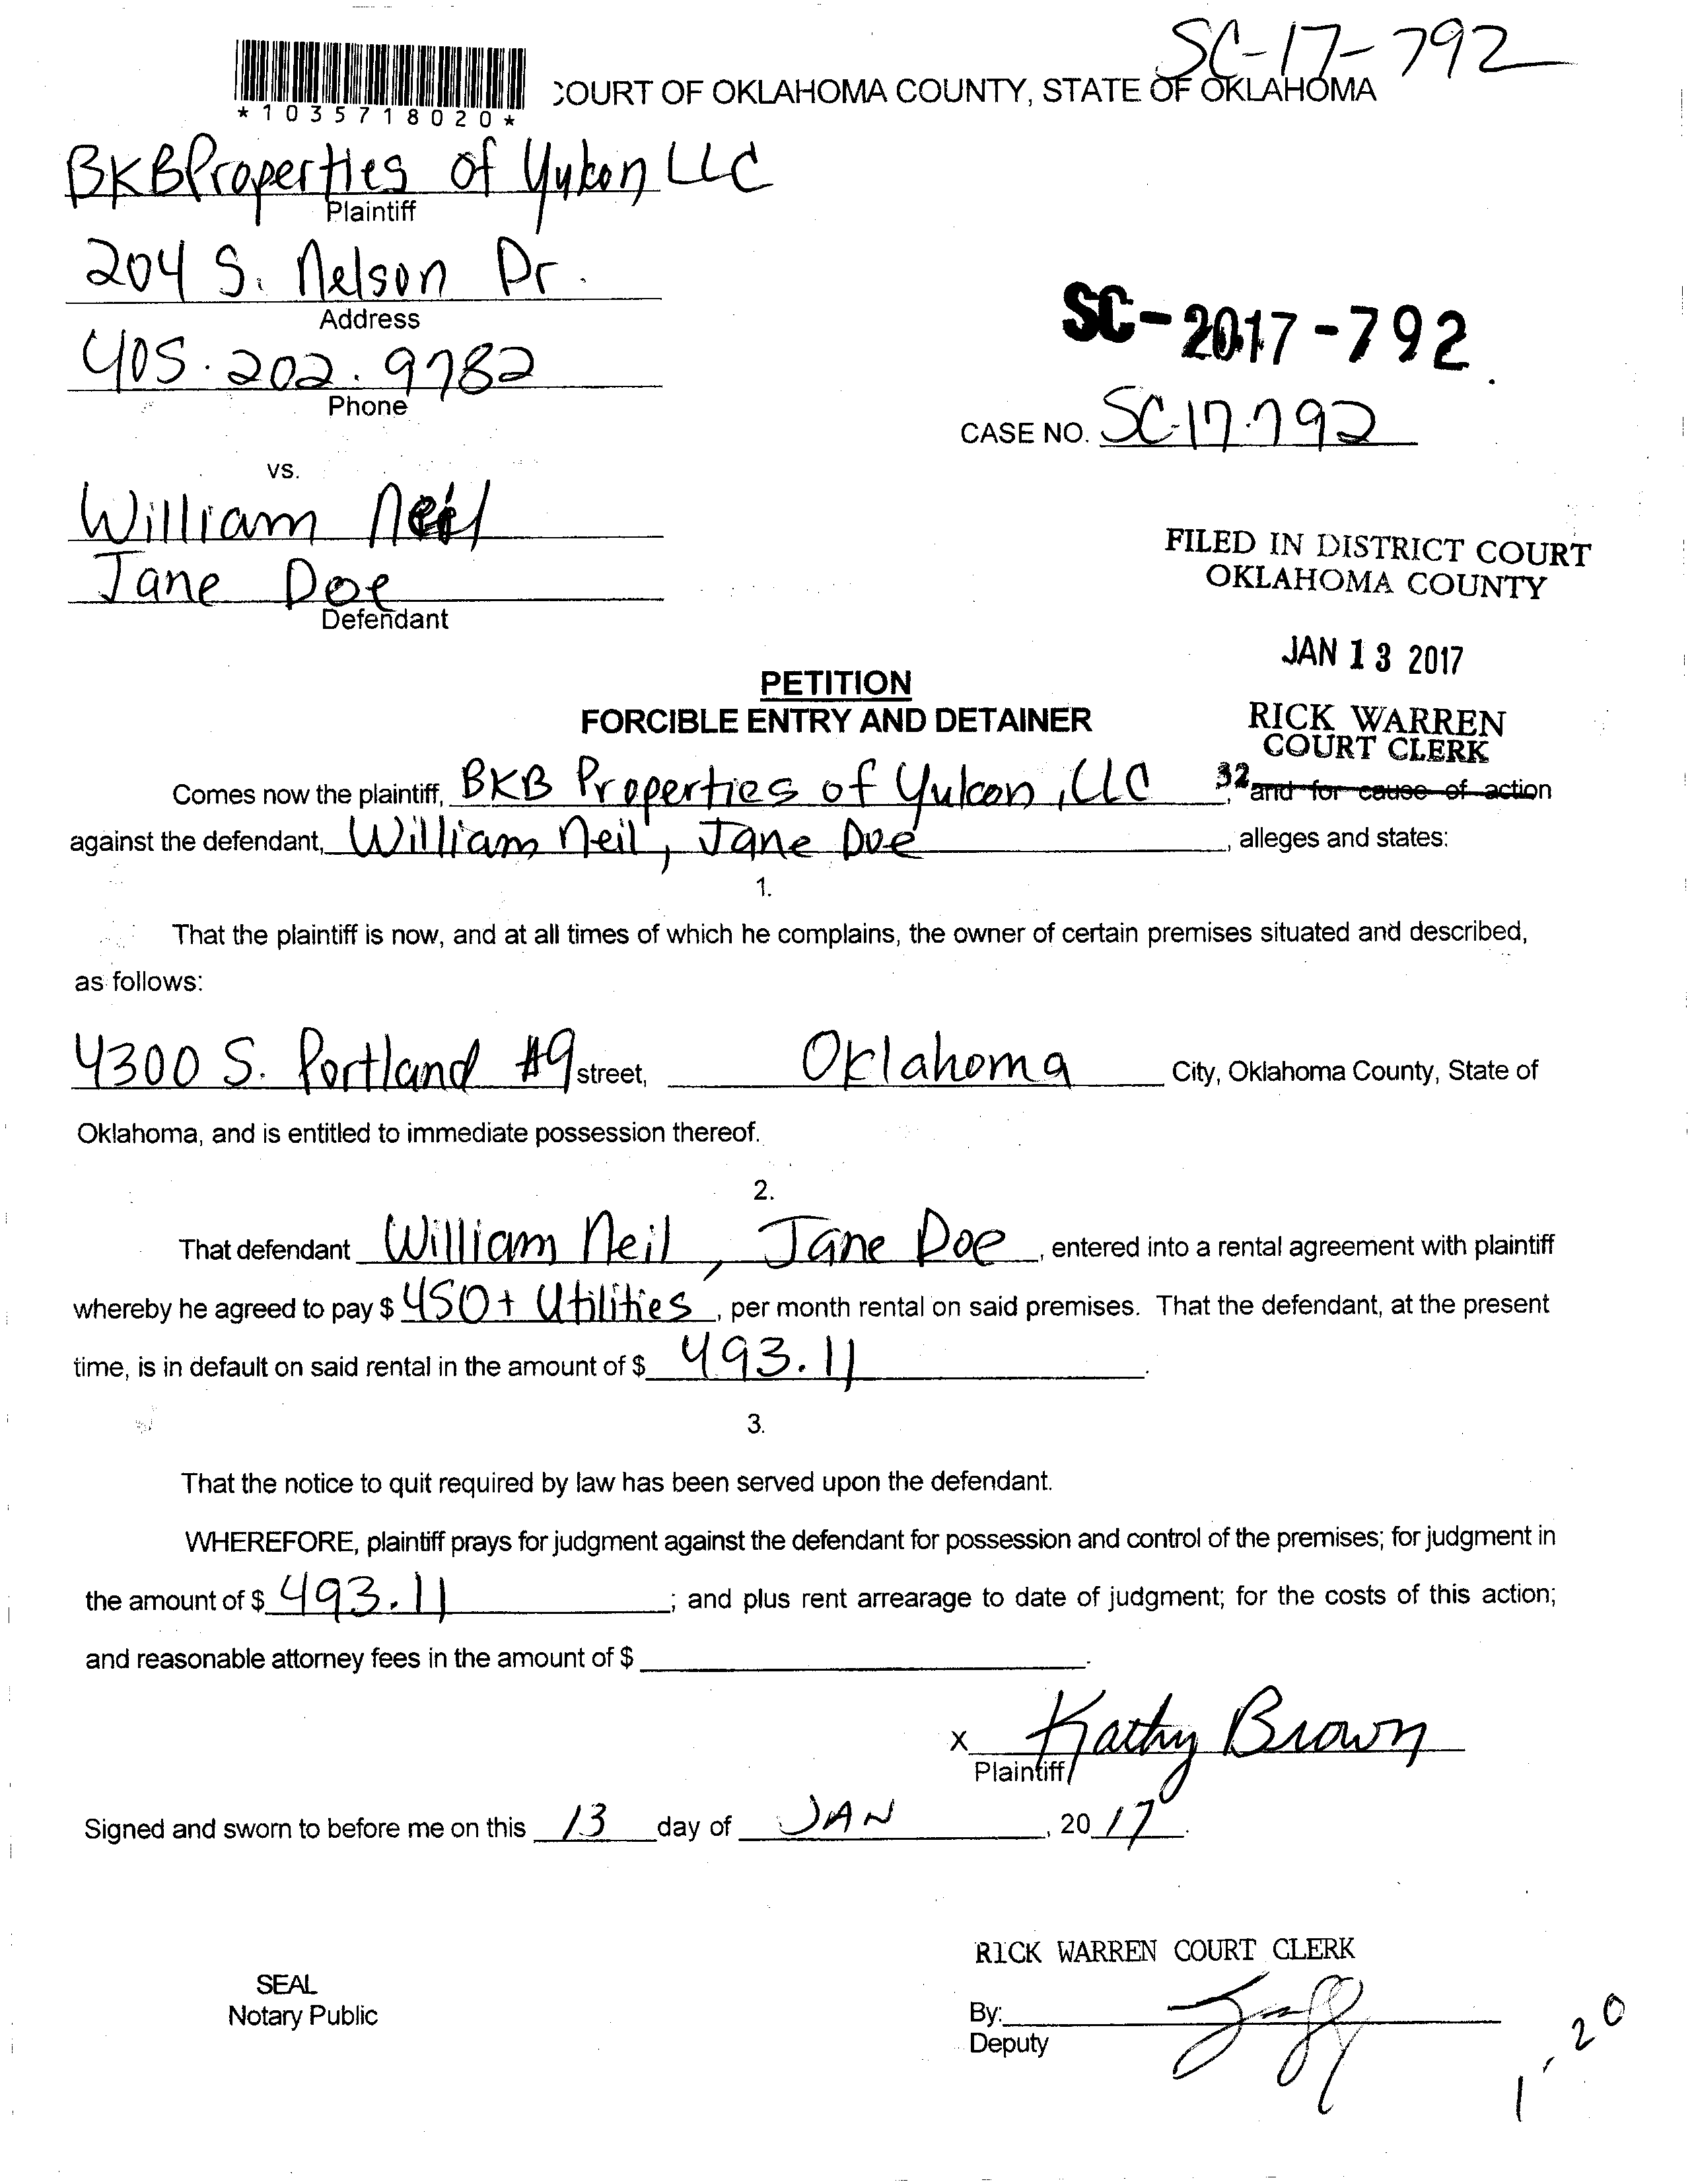 SC-17-792
COURT OF OKLAHOMA COUNTY, STATE OF OKLAHOMA
*1035718020*
BKBProperties of Yukon LLC
Plaintiff
204 S. Nelson Dr.
Address
SC-2017-792
405.202.9782
Phone
CASE NO. SC-17-792
vs.
William Neil
Jane Doe
Defendant
FILED IN DISTRICT COURT
OKLAHOMA COUNTY
JAN 13 2017
RICK WARREN
COURT CLERK
32
PETITION
FORCIBLE ENTRY AND DETAINER
Comes now the plaintiff, BKB Properties of Yukon, LLC, and for cause of action
against the defendant, William Neil, Jane Doe, alleges and states:
1.
That the plaintiff is now, and at all times of which he complains, the owner of certain premises situated and described,
as follows:
4300 S. Portland #9 street, Oklahoma City, Oklahoma County, State of
Oklahoma, and is entitled to immediate possession thereof.
2.
That defendant William Neil, Jane Doe, entered into a rental agreement with plaintiff
whereby he agreed to pay $ 450 + Utilities, per month rental on said premises. That the defendant, at the present
time, is in default on said rental in the amount of $ 493.11.
3.
That the notice to quit required by law has been served upon the defendant.
WHEREFORE, plaintiff prays for judgment against the defendant for possession and control of the premises; for judgment in
the amount of $ 493.11; and plus rent arrearage to date of judgment; for the costs of this action;
and reasonable attorney fees in the amount of $ .
X Kathy Brown
Plaintiff
Signed and sworn to before me on this 13 day of JAN, 20 17.
RICK WARREN COURT CLERK
SEAL
Notary Public
By:
Deputy
1,20